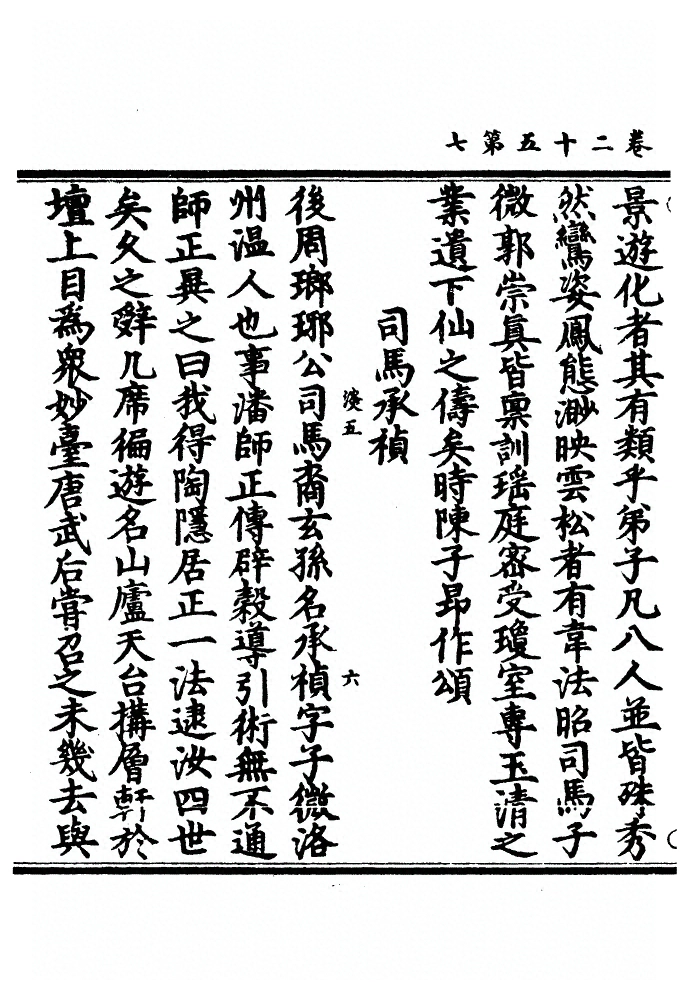 卷二十五第七
景遊化者其有類乎弟子凡八人並皆殊秀
然鸞姿鳳態渺映雲松者有韋法昭司馬子
微郭崇眞皆稟訓瑶庭密受瓊室專玉清之
業遺下仙之儔矣時陳子昂作頌
司馬承禎
淡五
六
後周瑯琊公司馬裔玄孫名承禎字子微洛
州温人也事潘師正傳辟穀導引術無不通
師正異之曰我得陶隱居正一法逮汝四世
矣久之辭几席徧遊名山廬天台搆層軒於
壇上目爲衆妙臺唐武后嘗召之未幾去與